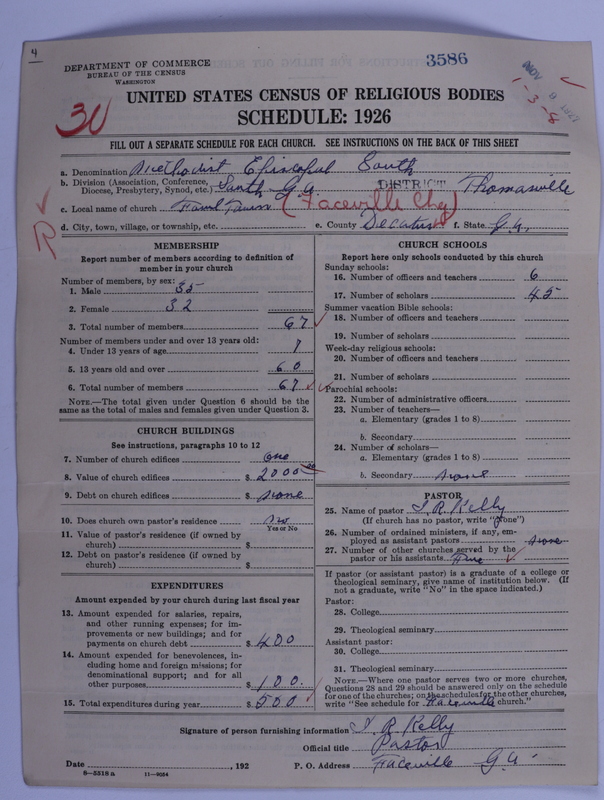 4
DEPARTMENT OF COMMERCE
BUREAU OF THE CENSUS
WASHINGTON
3586
NOV 9 1927
1-3-8
30
UNITED STATES CENSUS OF RELIGIOUS BODIES
SCHEDULE: 1926
FILL OUT A SEPARATE SCHEDULE FOR EACH CHURCH. SEE INSTRUCTIONS ON THE BACK OF THIS SHEET
a. Denomination Methodist Episcopal South
b. Division (Association, Conference, Diocese, Presbytery, Synod, etc.) South Ga DISTRICT Thomasville
c. Local name of church (Faceville Chg)
d. City, town, village, or township, etc. e. County Decatur f. State Ga,
R
MEMBERSHIP
Report number of members according to definition of member in your church
Number of members, by sex:
1. Male 35
2. Female 32
3. Total number of members 67
Number of members under and over 13 years old:
4. Under 13 years of age 7
5. 13 years old and over 60
6. Total number of members 67
NOTE.—The total given under Question 6 should be the same as the total of males and females given under Question 3.
CHURCH BUILDINGS
See instructions, paragraphs 10 to 12
7. Number of church edifices One
8. Value of church edifices $ 2000 00
9. Debt on church edifices $ None
10. Does church own pastor's residence No
Yes or No
11. Value of pastor's residence (if owned by church) $
12. Debt on pastor's residence (if owned by church) $
EXPENDITURES
Amount expended by your church during last fiscal year
13. Amount expended for salaries, repairs, and other running expenses; for improvements or new buildings; and for payments on church debt $ 400
14. Amount expended for benevolences, including home and foreign missions; for denominational support; and for all other purposes $ 100.
15. Total expenditures during year $ 500
CHURCH SCHOOLS
Report here only schools conducted by this church
Sunday schools:
16. Number of officers and teachers 6
17. Number of scholars 45
Summer vacation Bible schools:
18. Number of officers and teachers
19. Number of scholars
Week-day religious schools:
20. Number of officers and teachers
21. Number of scholars
Parochial schools:
22. Number of administrative officers
23. Number of teachers—
a. Elementary (grades 1 to 8)
b. Secondary
24. Number of scholars—
a. Elementary (grades 1 to 8)
b. Secondary None
PASTOR
25. Name of pastor J. R. Kelly
(If church has no pastor, write "none")
26. Number of ordained ministers, if any, employed as assistant pastors None
27. Number of other churches served by the pastor or his assistants Five
If pastor (or assistant pastor) is a graduate of a college or theological seminary, give name of institution below. (If not a graduate, write "No" in the space indicated.)
Pastor:
28. College
29. Theological seminary
Assistant pastor:
30. College
31. Theological seminary
NOTE.—Where one pastor serves two or more churches, Questions 28 and 29 should be answered only on the schedule for one of the churches; on the schedules for the other churches, write "See schedule for Faceville church."
Signature of person furnishing information J. R. Kelly
Official title Pastor
Date , 192 P. O. Address Faceville Ga.
8—5518 a 11—9054